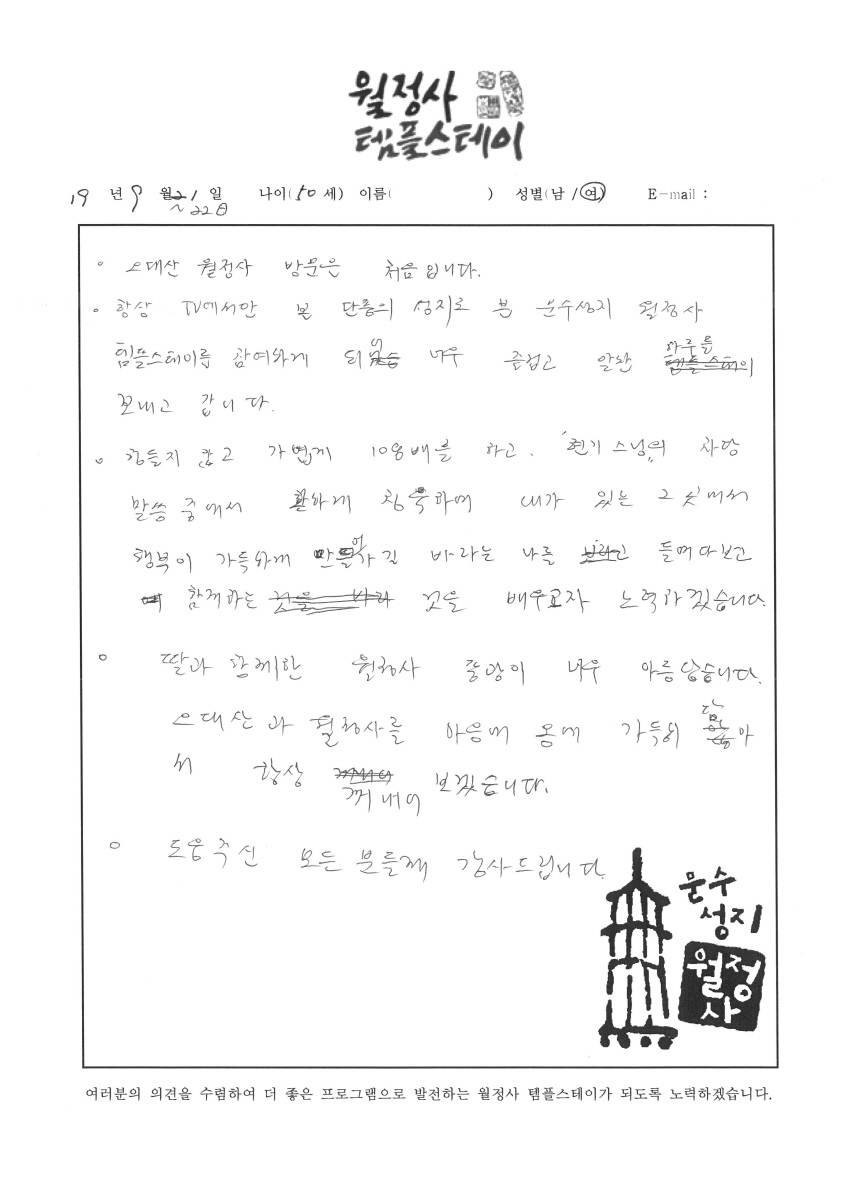 월정사
템플스테이
19 년 9 월 21 일 나이(50 세) 이름( ) 성별(남 / 여) E-mail :
~ 22日
◦ 오대산 월정사 방문은 처음입니다.
◦ 항상 TV에서만 본 단풍의 성지로 본 문수성지 월정사
템플스테이를 참여하게 되어 너무 즐겁고 알찬 하루를
보내고 갑니다.
◦ 힘들지 않고 가볍게 108배를 하고. 스님의 차담
말씀 중에서 환하게 내가 있는 그 곳에서
행복이 가득하게 만들어가길 바라는 나를 들여다보고
함께하는 것을 배우고자 노력하겠습니다.
◦ 딸과 함께한 월정사 풍광이 너무 아름답습니다.
오대산과 월정사를 마음에 몸에 가득히 담아
서 항상 꺼내어 보겠습니다.
◦ 도움주신 모든 분들께 감사드립니다.
문수
성지
월정
사
여러분의 의견을 수렴하여 더 좋은 프로그램으로 발전하는 월정사 템플스테이가 되도록 노력하겠습니다.